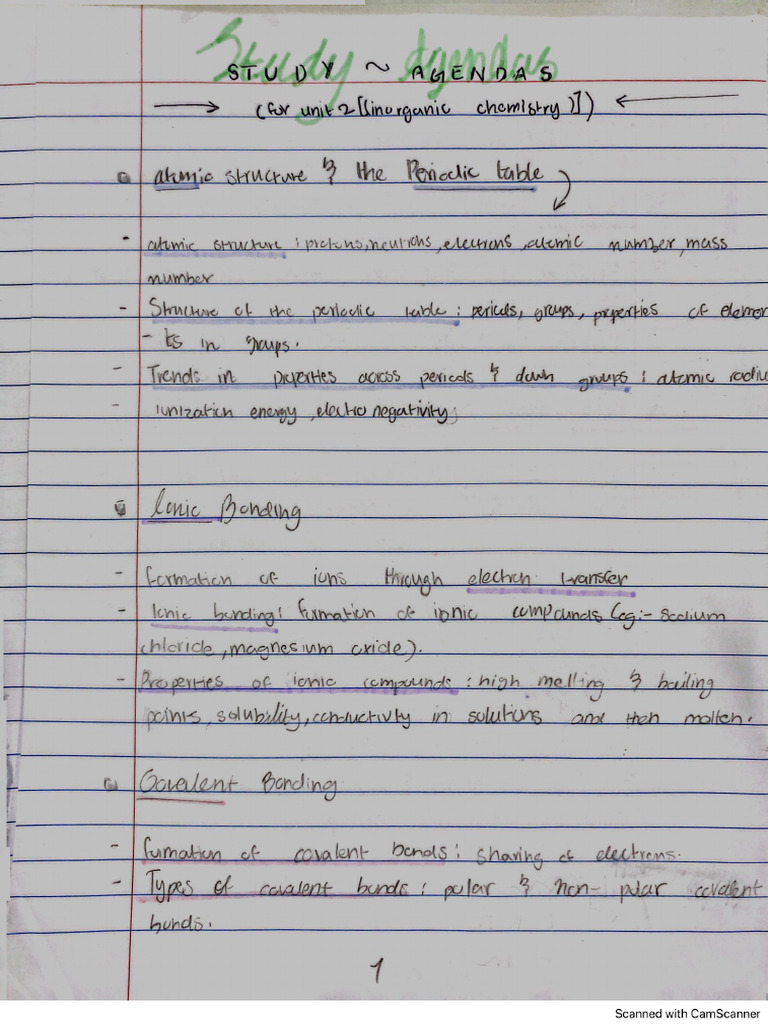 Study Agendas
STUDY ~ AGENDAS
(for unit 2 [(inorganic chemistry)])
atomic structure & the Periodic table
- atomic structure : protons, neutrons, electrons, atomic number, mass
number
- Structure of the periodic table : periods, groups, properties of elemen
- ts in groups.
- Trends in properties across periods & down groups : atomic radiu
- ionization energy, electronegativity
Ionic Bonding
- formation of ions through electron transfer
- Ionic bonding : formation of ionic compounds (eg:- sodium
chloride, magnesium oxide).
- Properties of ionic compounds : high melting & boiling
points, solubility, conductivity in solutions and then molten.
Covalent Bonding
- formation of covalent bonds : sharing of electrons.
- Types of covalent bonds : polar & non-polar covalent
bonds.
1
Scanned with CamScanner